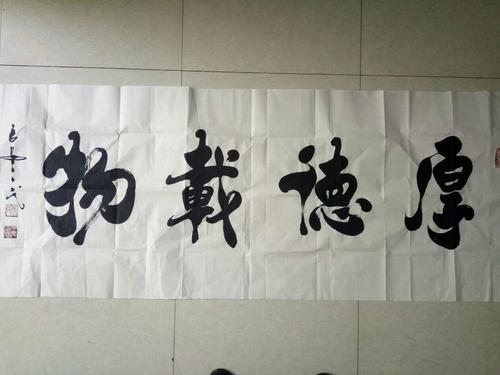 厚德載物